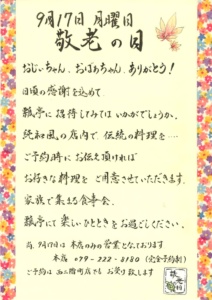 9月17日 月曜日
敬老の日
おじいちゃん、おばあちゃん、ありがとう!
日頃の感謝を込めて
瓢亭に招待してみてはいかがでしょうか。
純和風の店内で 伝統の料理を…
ご予約時にお伝え頂ければ
お好きな料理をご用意させていただきます。
家族で集まる食事会、
瓢亭にて楽しいひとときをお過ごしください。
尚、9月17日は 本店のみの営業となっております
本店 099-222-8180 (完全予約制)
ご予約は 店でも お受け致します